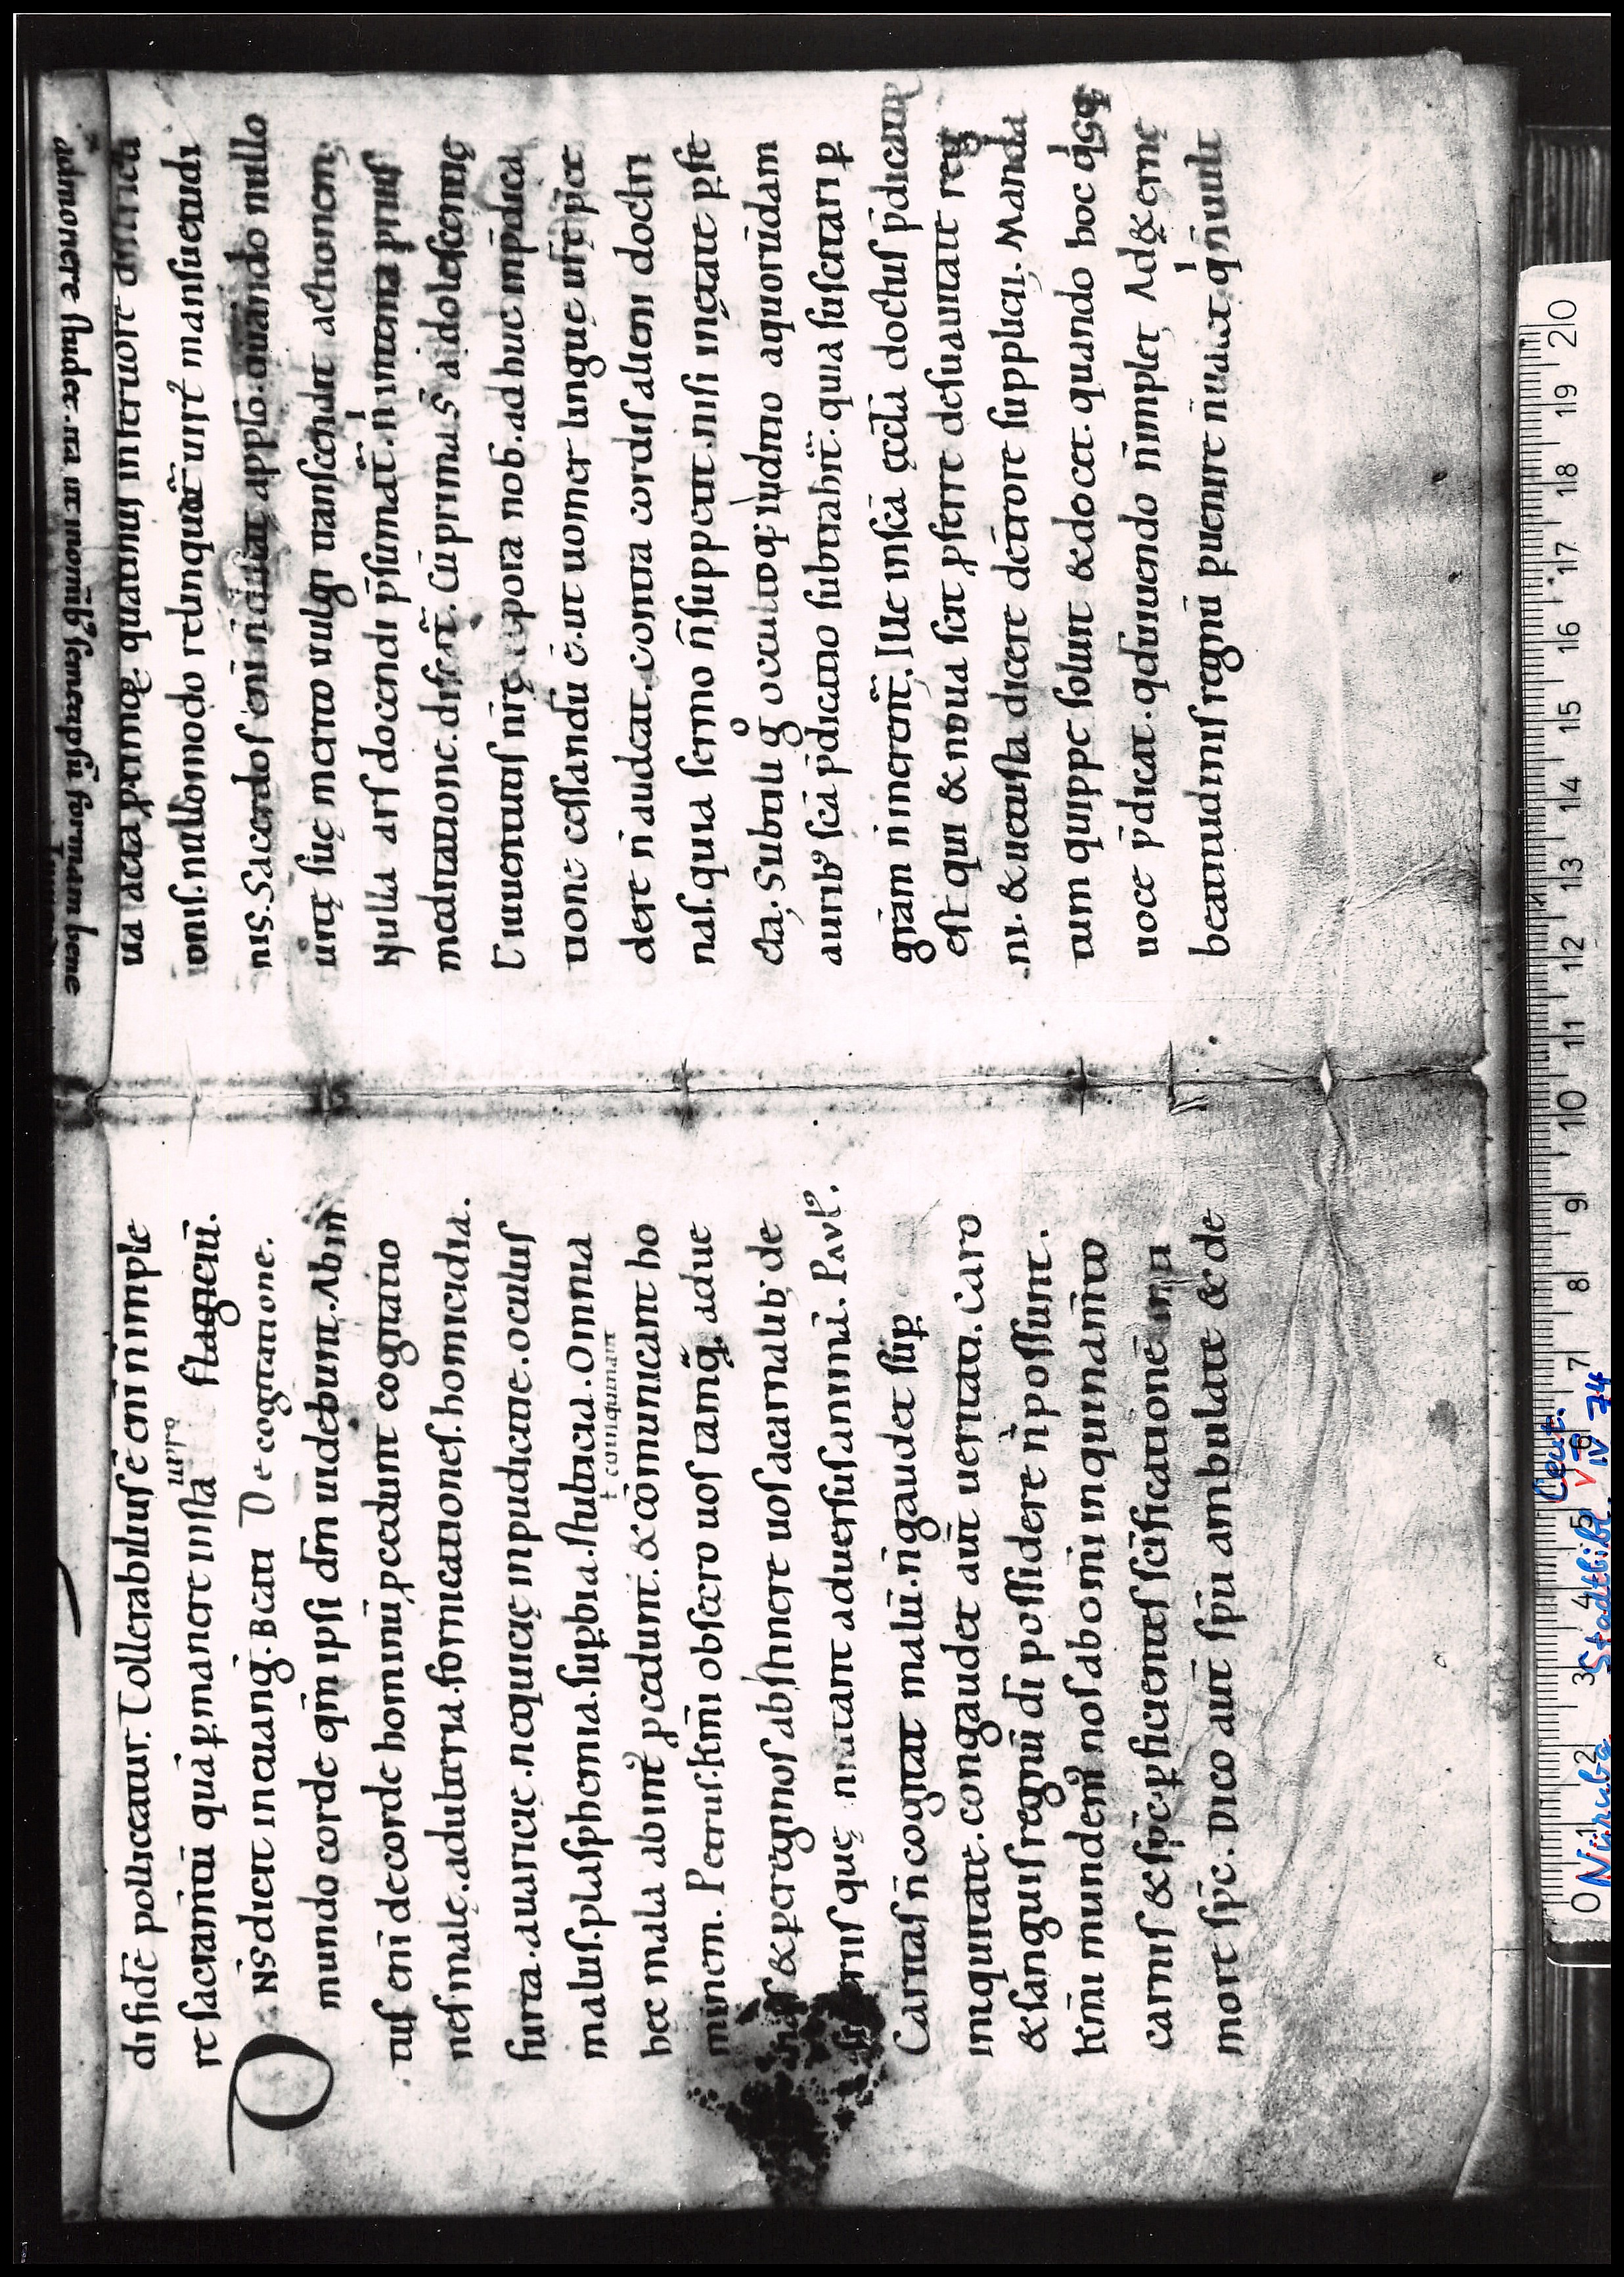 disfidē polliceatur. Tollerabiliusē enī n̄imple
re sacramtū quā pmanere insta turpr̊ flagiciū.
DN̄S dicit in euangł. Beati De cogitatione.
mundo corde qm̄ ipsi dm̄ uidebunt. Abin
tus enī decorde hominū pcedunt cogitatio
nes malę. adulteria. fornicationes. homicidia.
furta. auaricię. nequicię inpudicitie. oculus
malus. plasphemia. supbia. stulticia. Omnia
ł coinquinant
hec mala abint̾ pcedunt. & cōmunicant ho
minem. Petrus. kmī obsecro uos tamq̄. adue
nas & peregrinos abstinere uos acarnalib; de
siderius quę militant aduersus animā. Paulꝰ.
Caritas n̄ cogitat malū. n̄gaudet sup
iniquitate. congaudet aut̄ ueritati. Caro
& sanguis regnū dī possidere n̄ possunt.
kmī mundemꝰ nos ab omī inquinamto
carnis & spc̄. pficientes scīficationē in ti
more spc̄. Dico aut̄ spū ambulate & de
admonere studet. ita ut in omībꝰ semetipsū formam bene
uiuendi
ua acta pennę. quatinus inferiore
ionis. nullomodo relinquat̄ uirt̾ mansuetudi
nis. Sacerdos enī n̄ applo. quando nullo
uitę suę merito uulgi transcendit actionem,
Nulla ars docendi p̄sumat̄. nī intenta prius
meditatione. discat̄. Cū primas adolescentię
ł iuuentutis nr̄ę tpora nob. adhuc inp̄dica
tione cessandū ē. ut uomer linguę ur̄ę p̄ce
dere n̄ audeat. contra cordis alieni doctri
nas. quia sermo n̄ suppetit. nisi in etate pfe
cta. Subtili g̊ occultoq; iudicio aquorūdam
auribꝰ scā p̄dicatio subtrahit̄. quia suscitari p
grām n̄ merent̄. Ille inscā ęcclā doctus p̄dicator
est qui & noua scit pferre desuauitate regni
ni. & uetusta dicere deterrore supplicii. Manda
tum quippe soluit & docet. quando hoc q̄sq;
uoce p̄dicat. qđuiuendo n̄ implet. Ad & ernę
beatitudinis regnū puenire n̄ ualet. qn̄ uult
Nürnbg. Stadtbibl. Cent. V IV 74
0 1 2 3 4 5 6 7 8 9 10 11 12 13 14 15 16 17 18 19 20